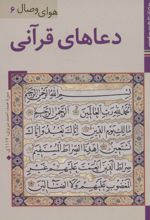 هوای وصال ۶
دعاهای قرآنی
بسم الله الرحمن الرحيم
الحمد لله رب العالمين الرحمن الرحيم
مالك يوم الدين اياك نعبد واياك
نستعين اهدنا الصراط المستقيم
صراط الذين انعمت عليهم غير
المغضوب عليهم ولا الضالين